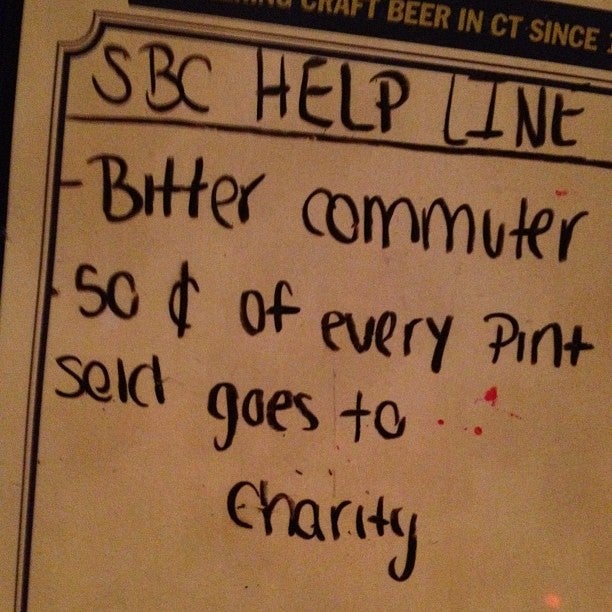 CRAFT BEER IN CT SINCE
SBC HELP LINE
- Bitter commuter
- 50 ¢ of every Pint
sold goes to
charity